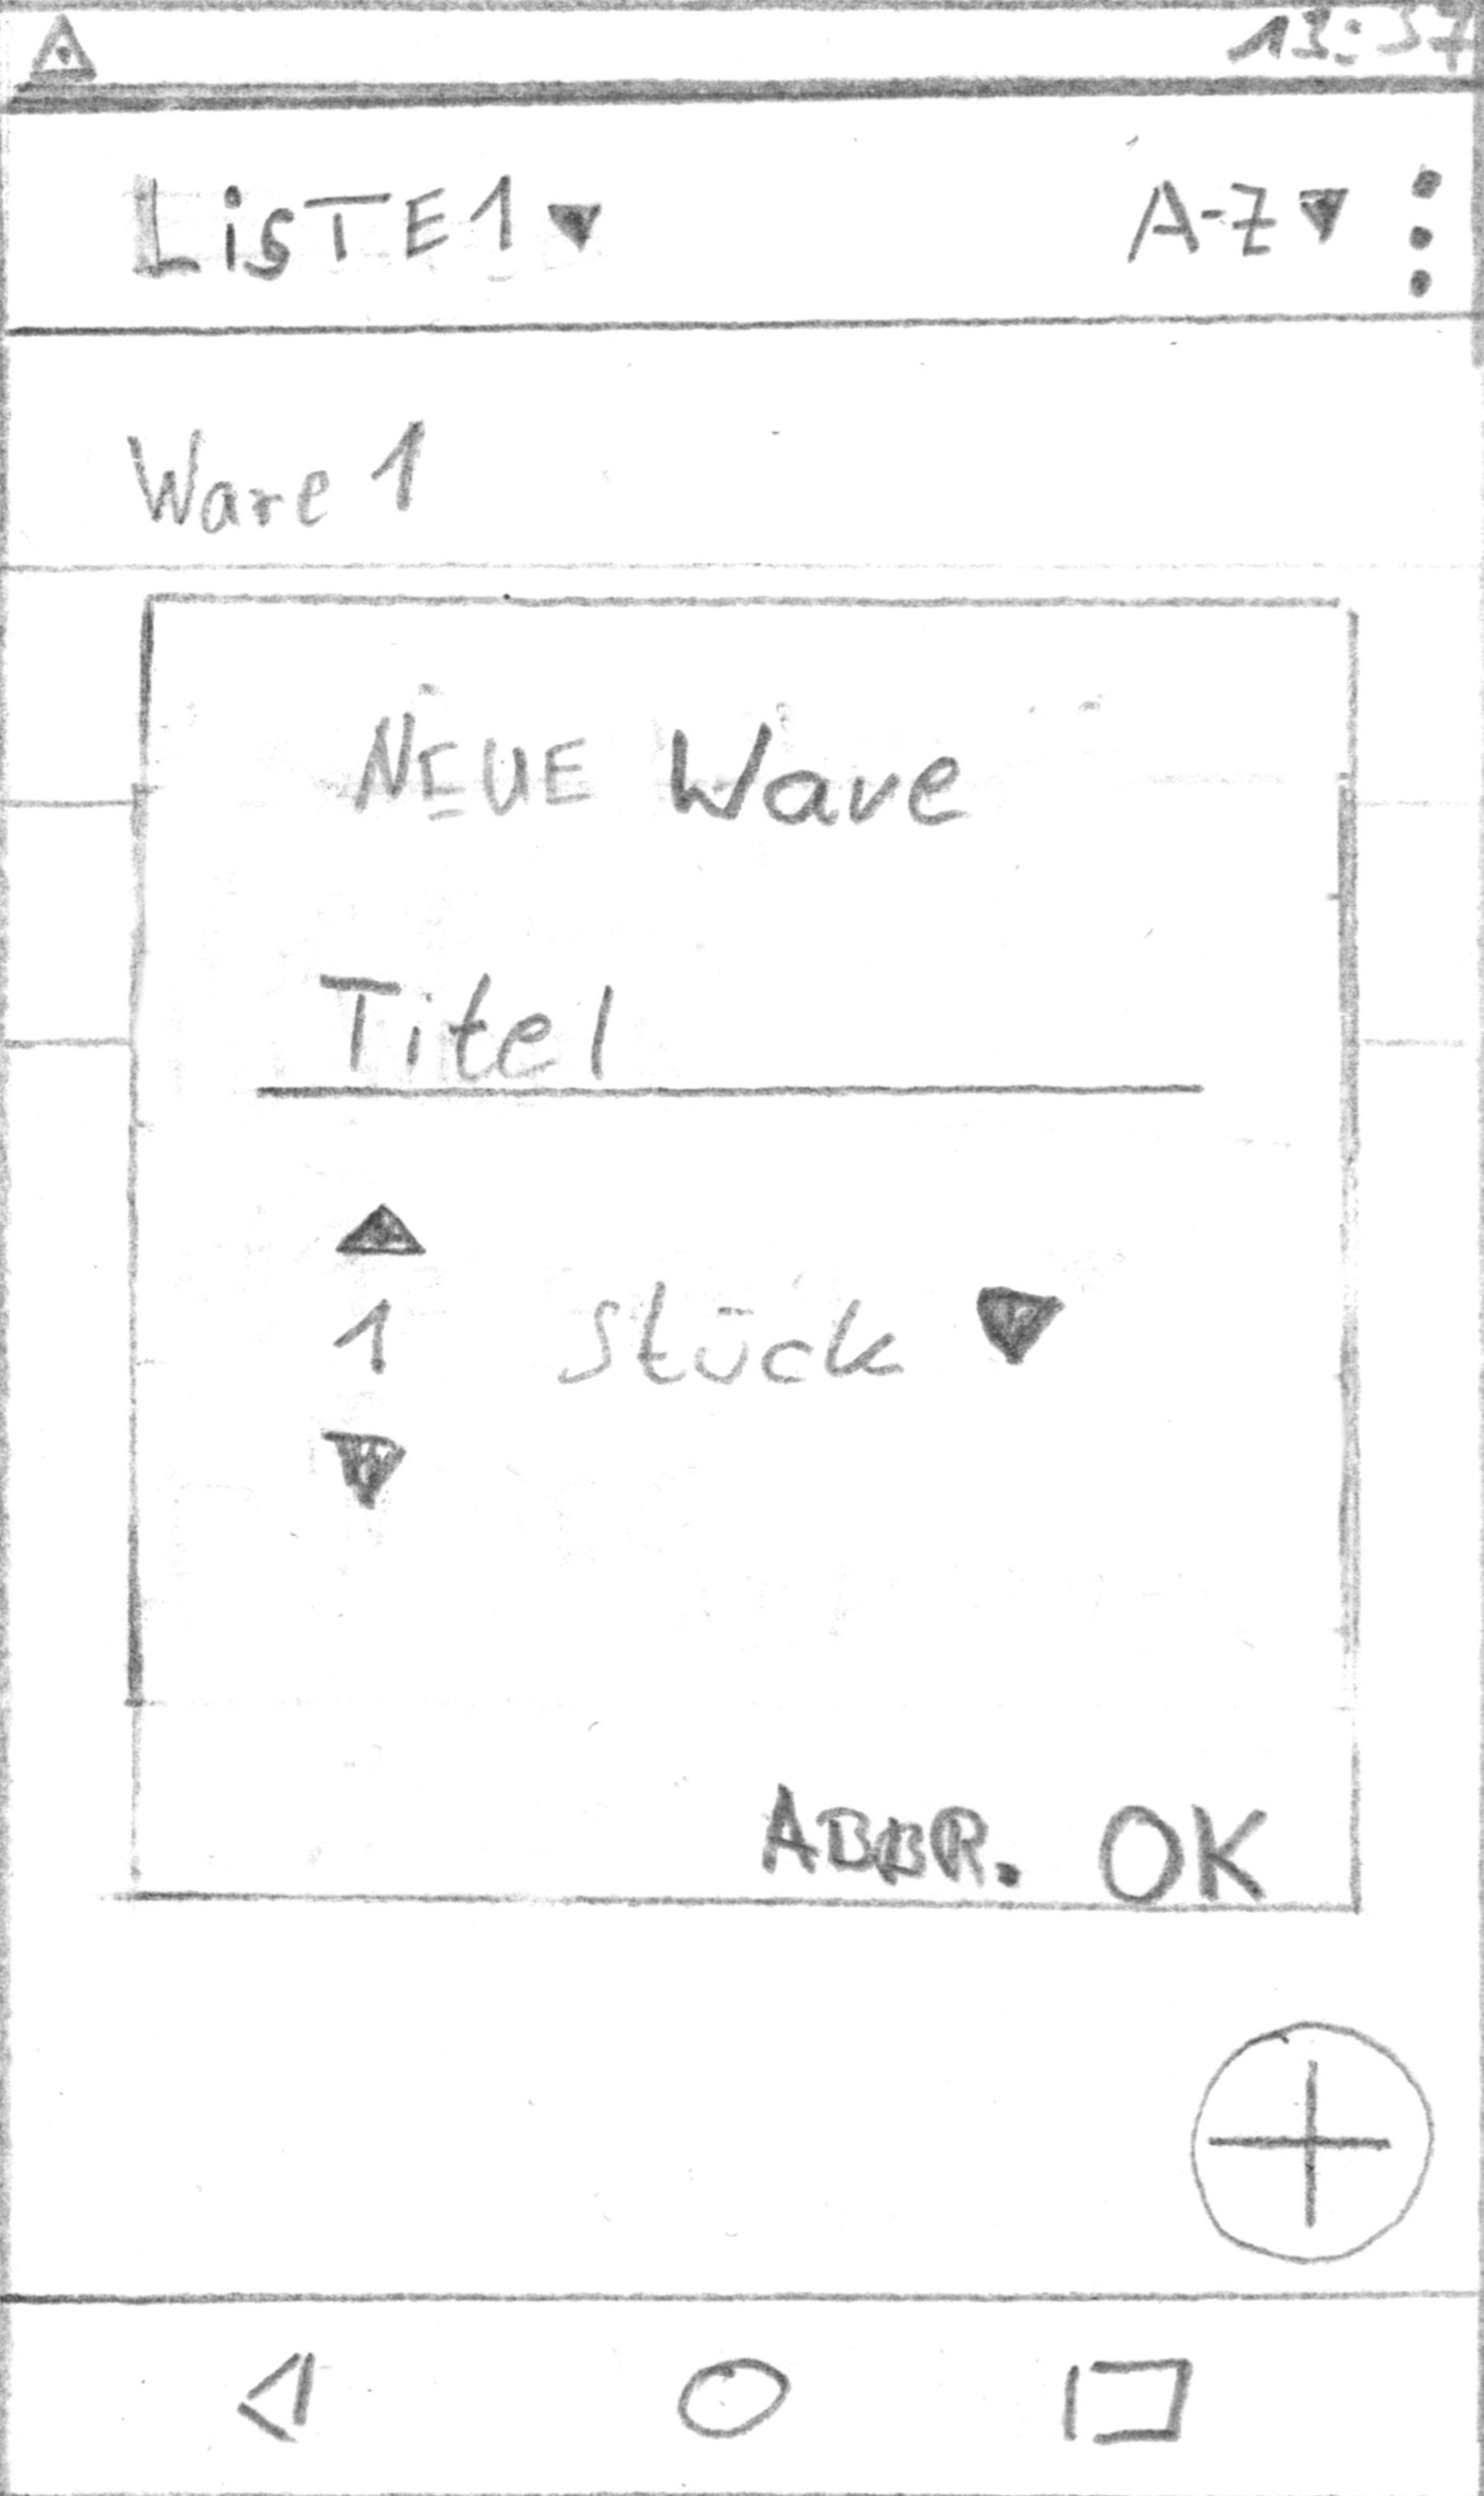 13:37
LiSTE1 A-Z
Ware 1
NEUE Ware
Titel
1 Stück
ABBR. OK